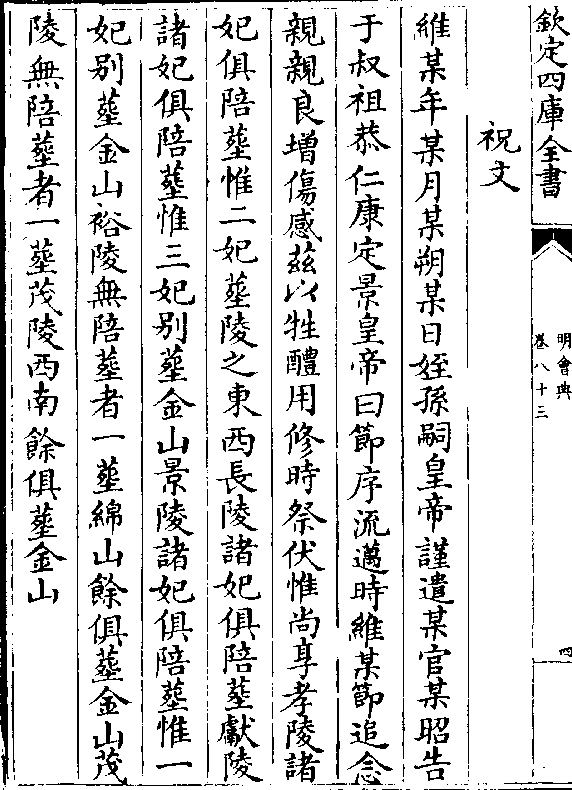 欽定四庫全書
明會典
卷八十三
四
祝文
維某年某月某朔某日姪孫嗣皇帝謹遣某官某昭告
于叔祖恭仁康定景皇帝曰節序流邁時維某節追念
親親良增傷感兹以牲醴用修時祭伏惟尚享孝陵諸
妃俱陪葬惟二妃葬陵之東西長陵諸妃俱陪葬獻陵
諸妃俱陪葬惟三妃别葬金山景陵諸妃俱陪葬惟一
妃别葬金山裕陵無陪葬者一葬綿山餘俱葬金山茂
陵無陪葬者一葬茂陵西南餘俱葬金山